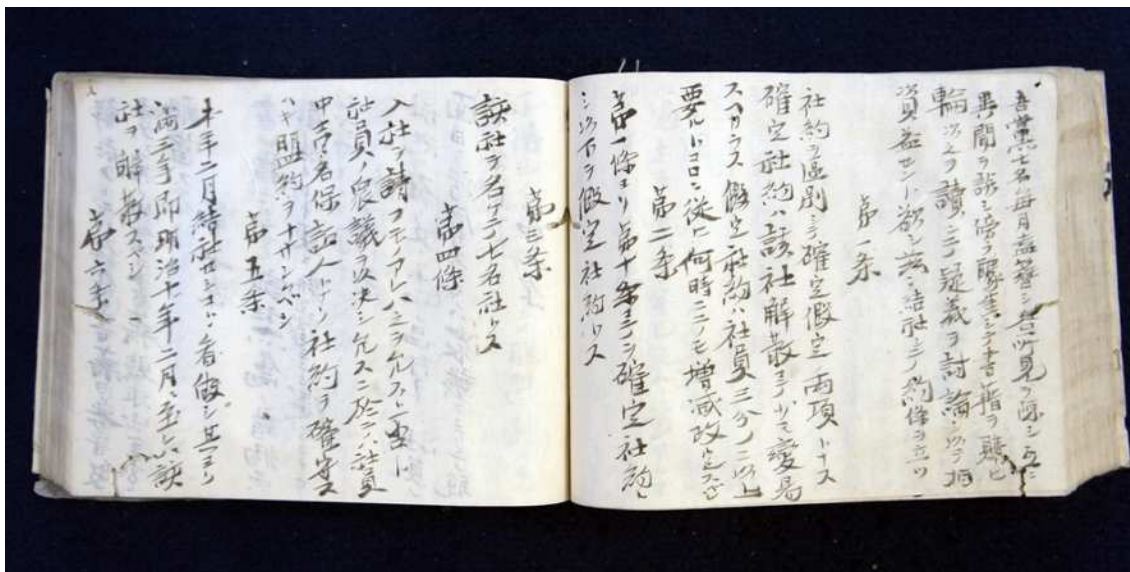 吾黨七名毎月益簪シ各所見ヲ陳シ
異聞ヲ談シ傍ラ聚集シテ書籍ヲ
輪次之ヲ讀ミテ疑義ヲ討論シ以テ相
資益セント欲シ茲ニ結社シテ約條ヲ立ツ
第一条
社約ヲ區別シテ確定假定ノ両項トナス
確定社約ハ該社解散マテ少モ変易
スヘカラス假定社約ハ社員三分ノ二以上
要ルトコロニ従ヒ何時ニテモ増減改定スヘシ
第二条
第一條ヨリ第十条マテヲ確定社約ト
シ以下ヲ假定社約トス
第三条
該社ヲ名ケテ七名社トス
第四條
入社ヲ請フモノアレハ之ヲ允スト雖ドモ
社員ノ衆議ヲ以決シ允スニ於テハ社員
中壱名保証人トナリ社約ヲ確守ス
ヘキ盟約ヲナサシムベシ
第五条
本年二月結社セシモノト看做シ其ヨリ
満三年即明治十年二月ニ至レハ該
社ヲ解散スベシ
第六条